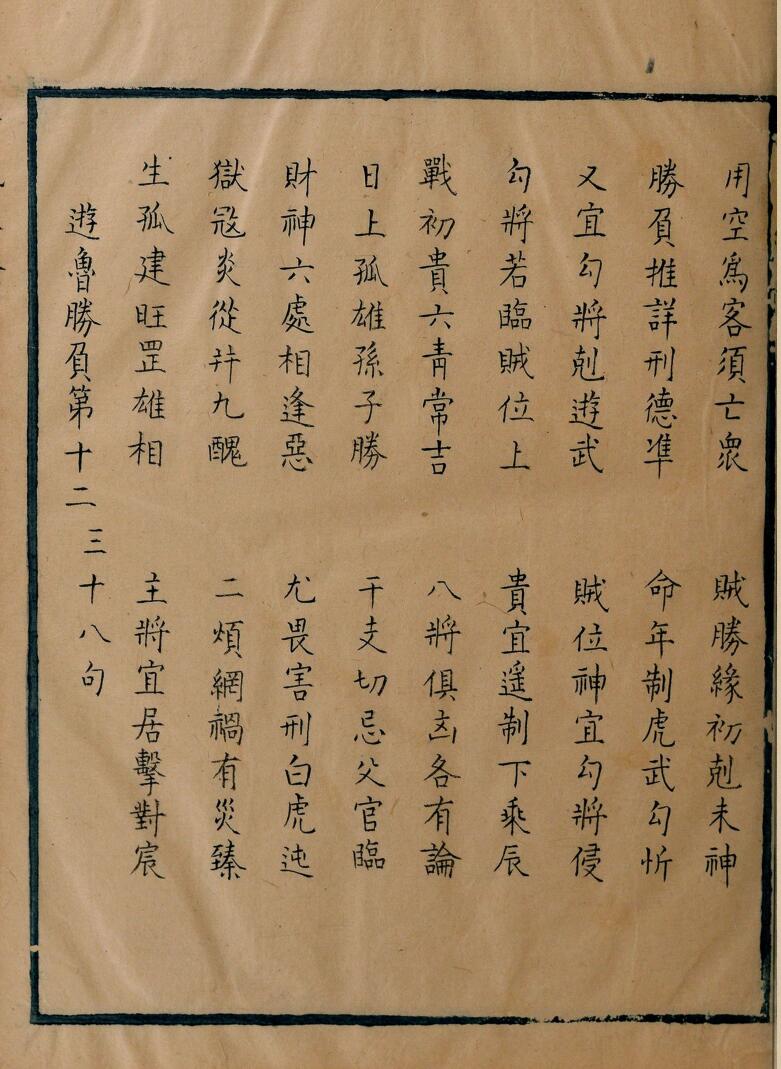 用空為客須亡衆　賊勝緣初剋末神
勝負推詳刑德準　命年制虎武勾忻
又宜勾將剋遊武　賊位神宜勾將侵
勾將若臨賊位上　貴宜遥制下乘辰
戰初貴六青常吉　八將俱凶各有論
日上孤雄孫子勝　干支切忌父官臨
財神六處相逢惡　尤畏害刑白虎迍
獄寇炎從并九醜　二煩網禍有災臻
生孤建旺罡雄相　主將宜居擊對宸
遊魯勝負第十二　三十八句